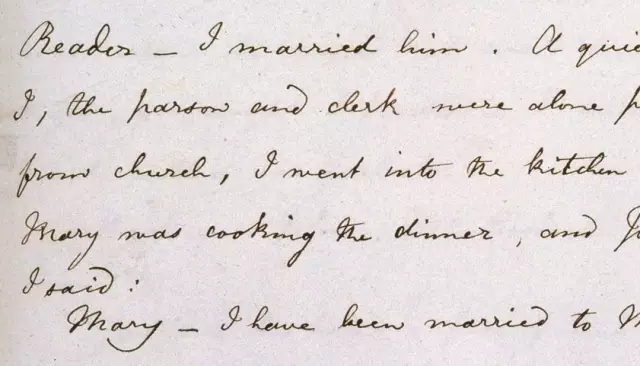 Reader – I married him. A quie
I, the parson and clerk were alone p
from church, I went into the kitchen
Mary was cooking the dinner, and J
I said:
Mary – I have been married to M